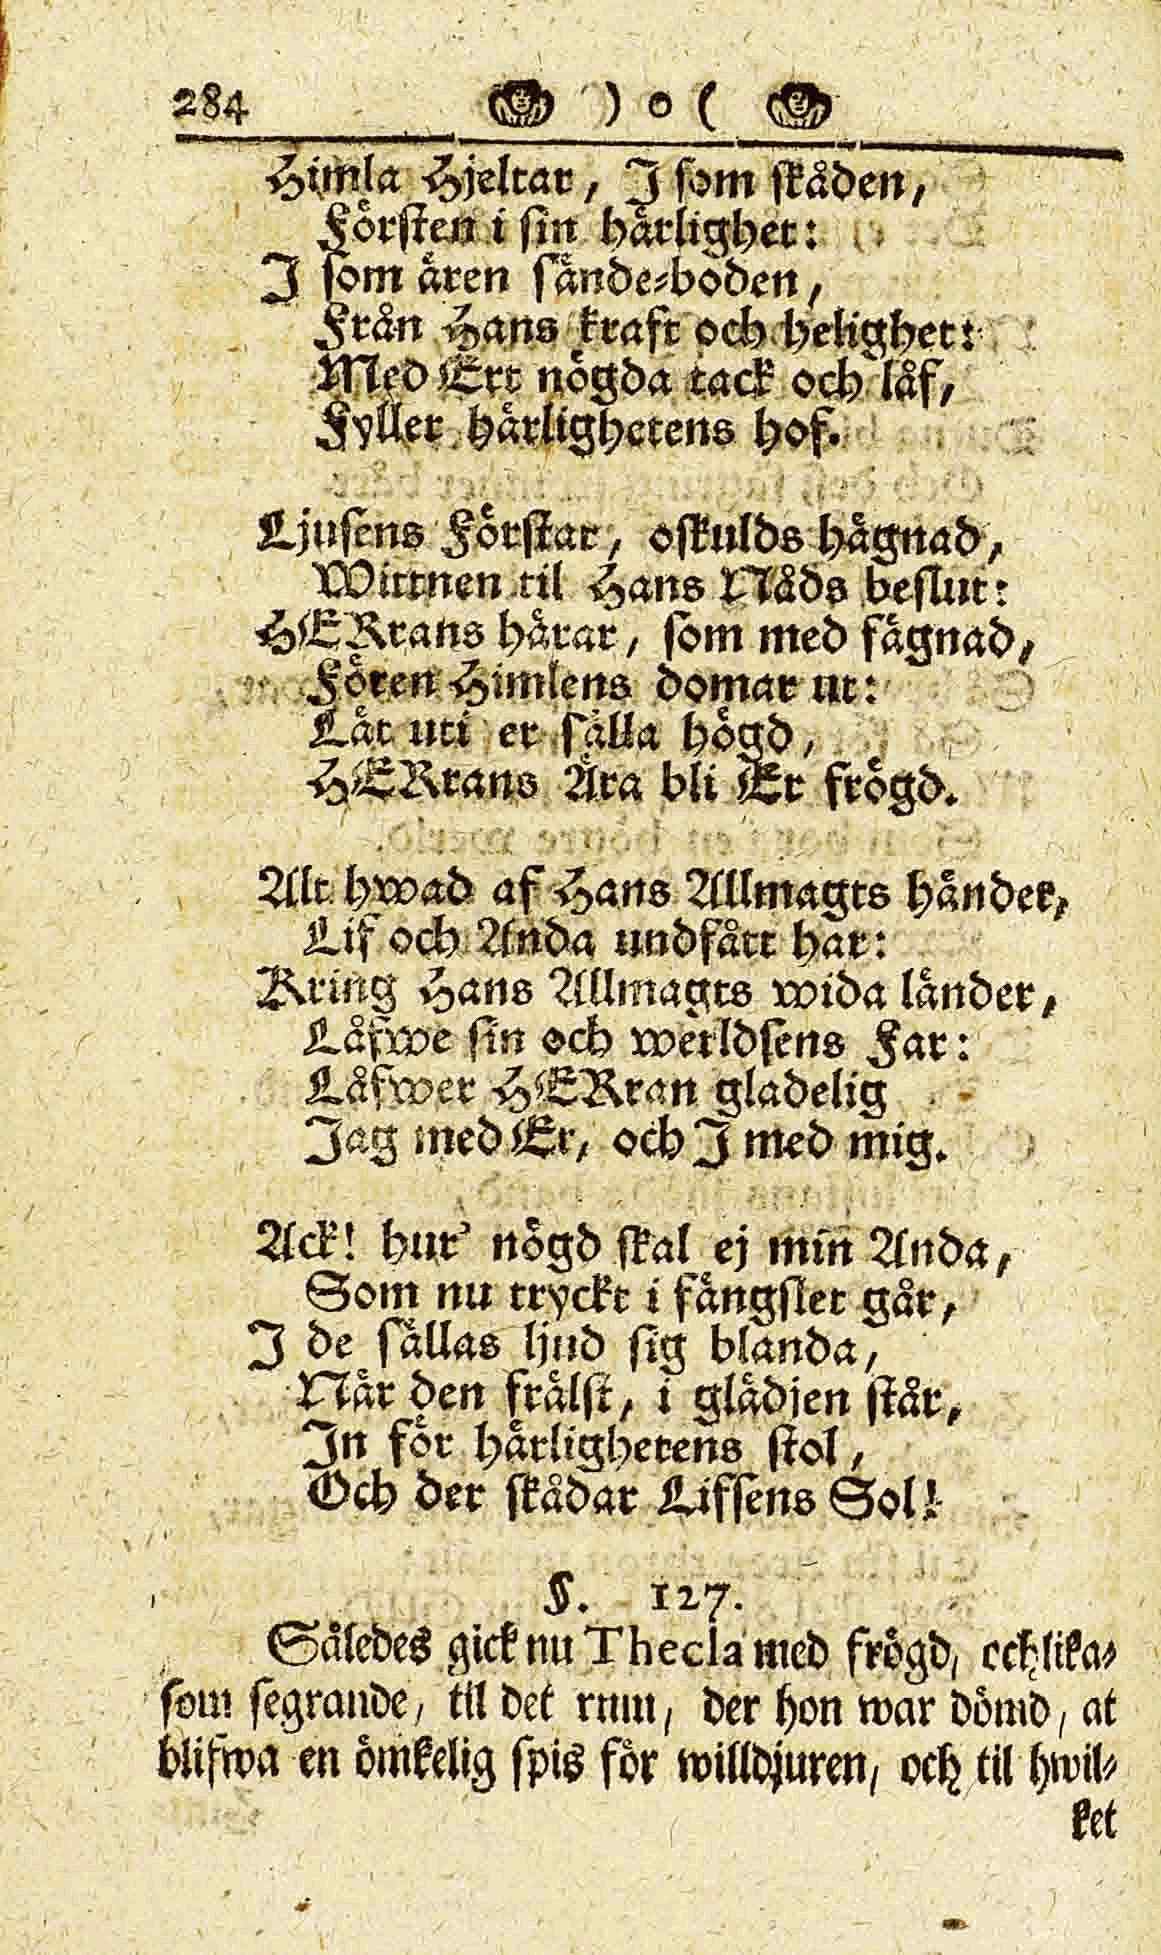 284 ) o (
Himla Hjeltar, I som skåden,
Försten i sin härlighet:
I som ären sände-boden,
Från Hans kraft och helighet:
Med Ert nögda tack och låf,
Fyller härlighetens hof.
Ljusens Förstar, oskulds hägnad,
Wittnen til Hans Nåds beslut:
HERrans härar, som med fägnad,
Fören Himlens domar ut:
Låt uti er sälla högd,
HERrans Ära bli Er frögd.
Alt hwad af Hans Allmagts händer,
Lif och Anda undfått har:
Kring Hans Allmagts wida länder,
Låfwe sin och werldsens Far:
Låfwer HERran gladelig
Jag med Er, och I med mig.
Ack! hur' nögd skal ej min Anda,
Som nu tryckt i fängslet går,
I de sällas ljud sig blanda,
När den frälst, i glädjen står,
In för härlighetens stol,
Och der skådar Lifsens Sol!
§. 127.
Således gick nu Thecla med frögd, och lika-
som segrande, til det rum, der hon war dömd, at
blifwa en ömkelig spis för willdjuren, och til hwil-
ket